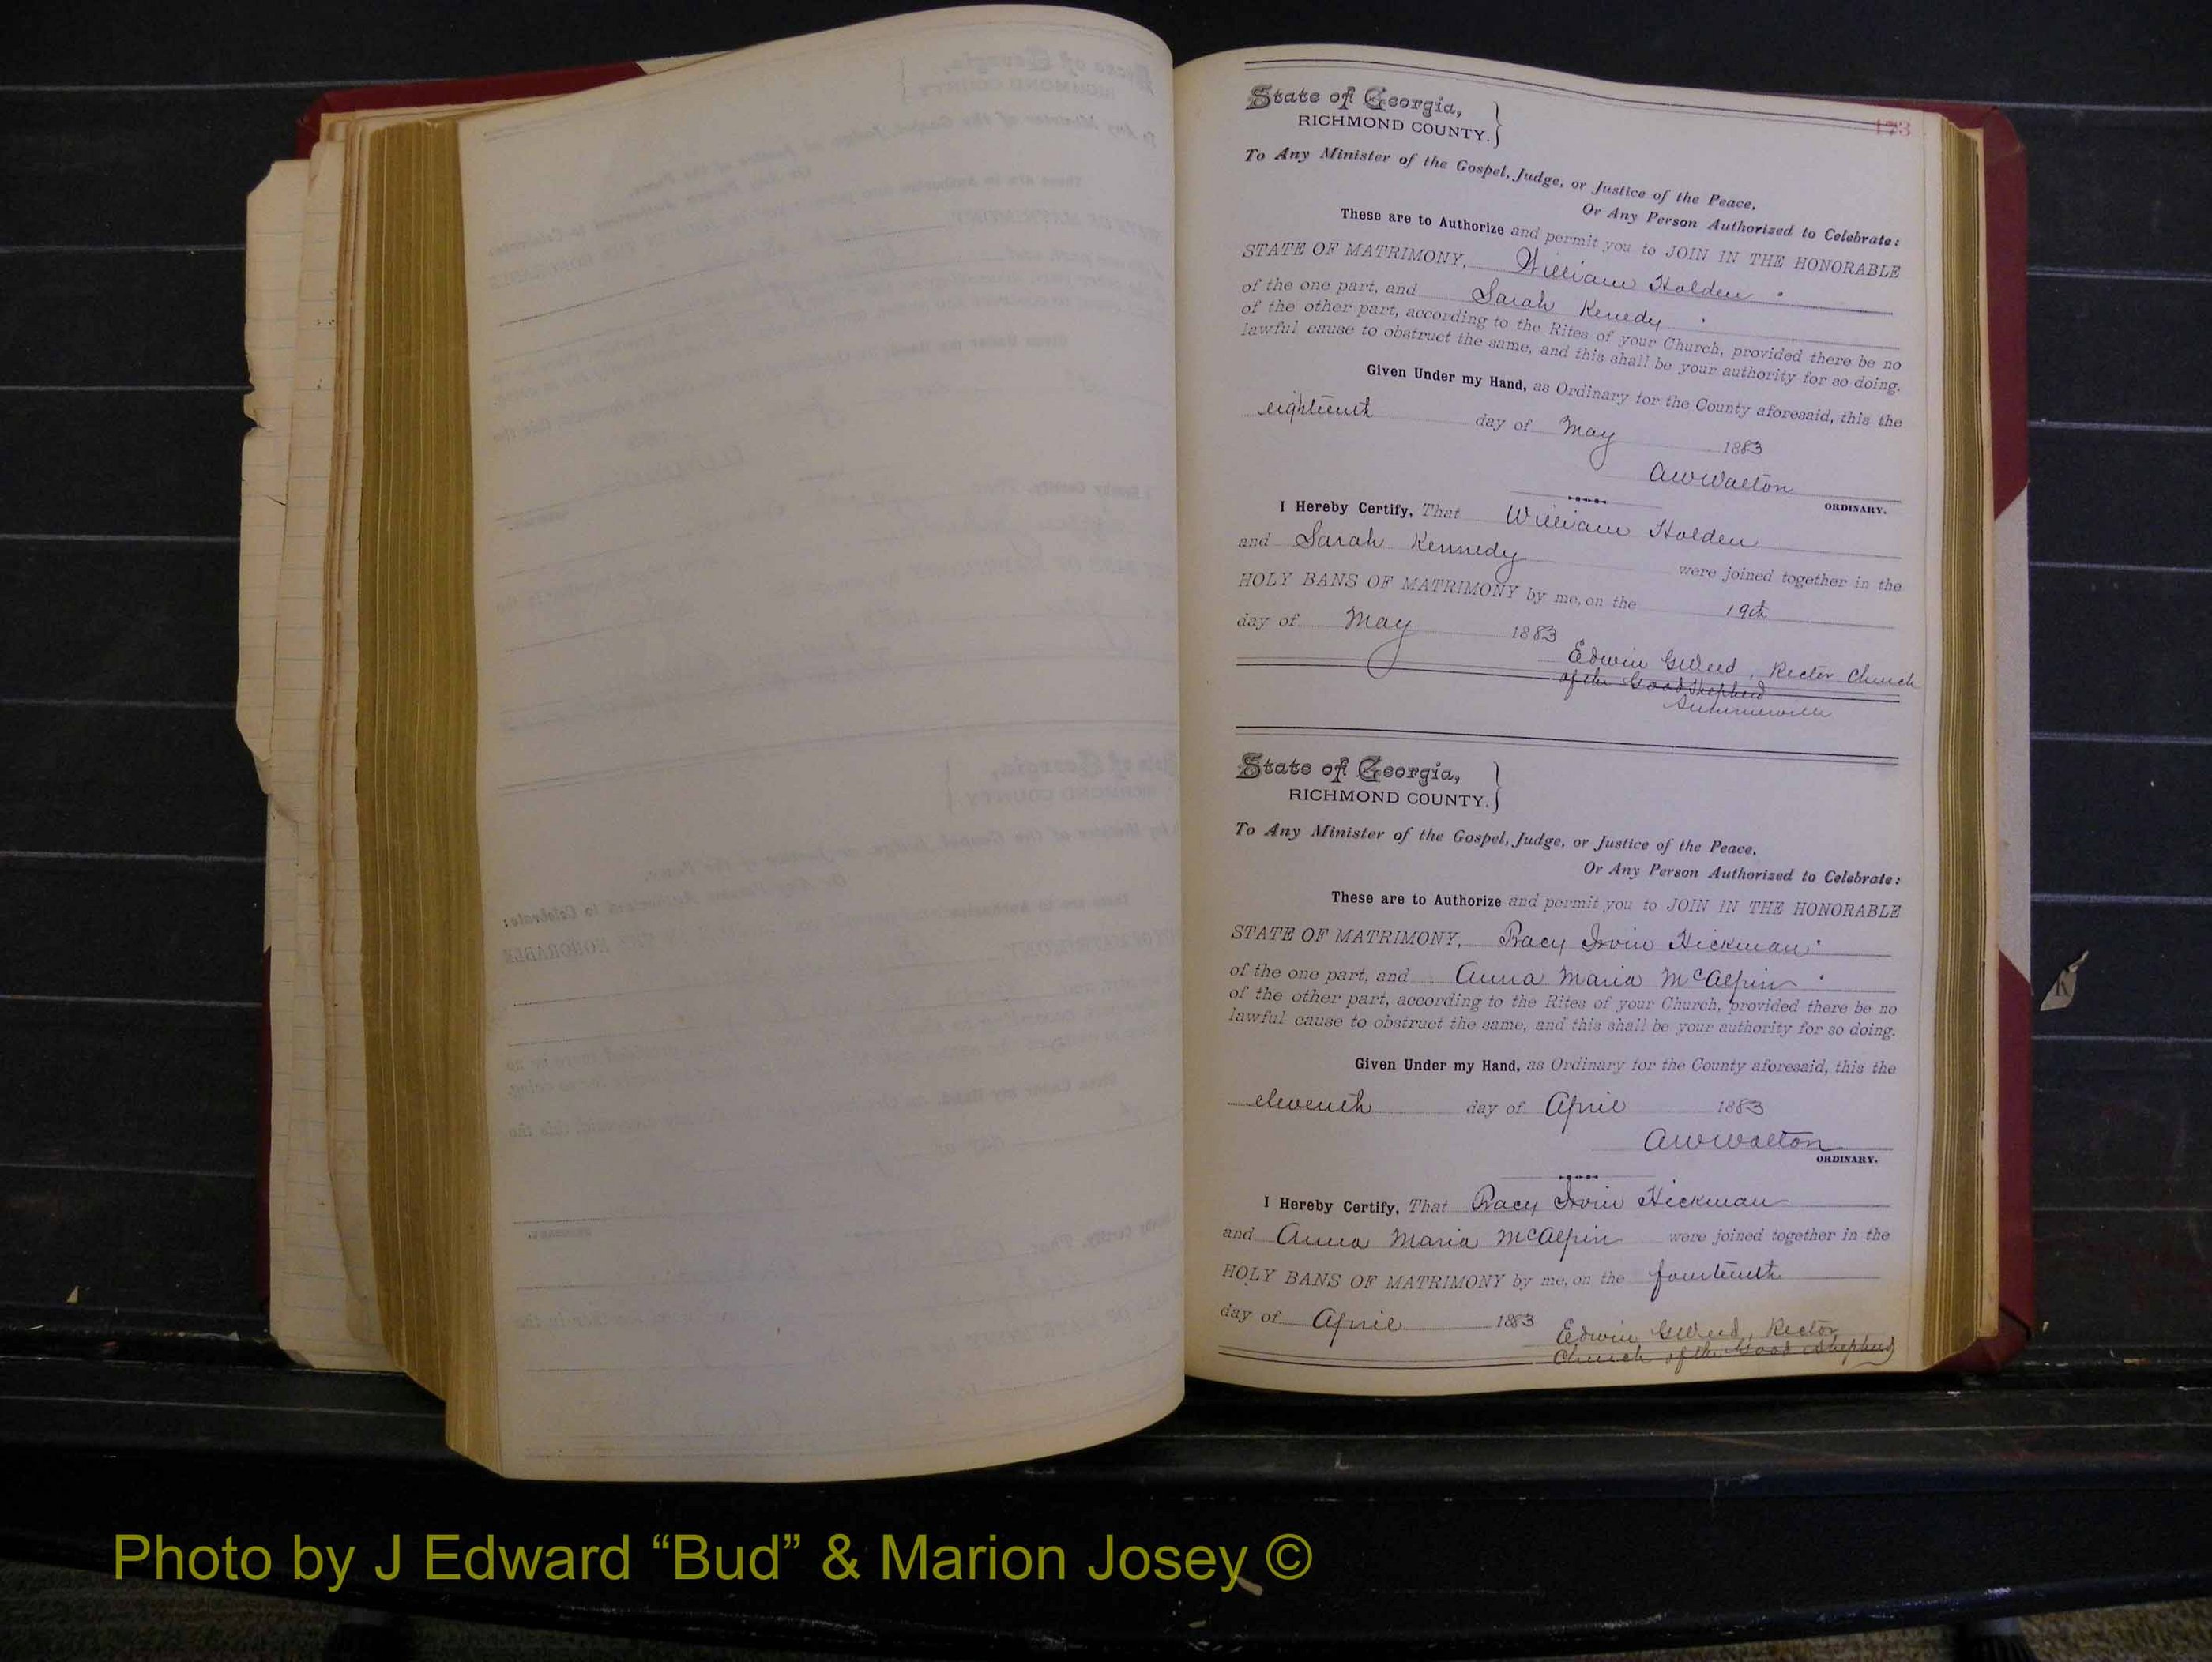 173
State of Georgia,
RICHMOND COUNTY.
To Any Minister of the Gospel, Judge, or Justice of the Peace,
Or Any Person Authorized to Celebrate:
These are to Authorize and permit you to JOIN IN THE HONORABLE
STATE OF MATRIMONY, William Holden
of the one part, and Sarah Kenedy
of the other part, according to the Rites of your Church, provided there be no
lawful cause to obstruct the same, and this shall be your authority for so doing.
Given Under my Hand, as Ordinary for the County aforesaid, this the
eighteenth day of May 1883
AWWalton
ORDINARY.
I Hereby Certify, That William Holden
and Sarah Kennedy were joined together in the
HOLY BANS OF MATRIMONY by me, on the 19th
day of May 1883
Edwin G Weed, Rector Church
of the Good Shepherd
Summerville
State of Georgia,
RICHMOND COUNTY.
To Any Minister of the Gospel, Judge, or Justice of the Peace,
Or Any Person Authorized to Celebrate:
These are to Authorize and permit you to JOIN IN THE HONORABLE
STATE OF MATRIMONY, Tracy Irvin Hickman
of the one part, and Anna Maria McAlpin
of the other part, according to the Rites of your Church, provided there be no
lawful cause to obstruct the same, and this shall be your authority for so doing.
Given Under my Hand, as Ordinary for the County aforesaid, this the
eleventh day of April 1883
AWWalton
ORDINARY.
I Hereby Certify, That Tracy Irvin Hickman
and Anna Maria McAlpin were joined together in the
HOLY BANS OF MATRIMONY by me, on the fourteenth
day of April 1883
Edwin G Weed, Rector
Church of the Good Shepherd
Photo by J Edward “Bud” & Marion Josey ©